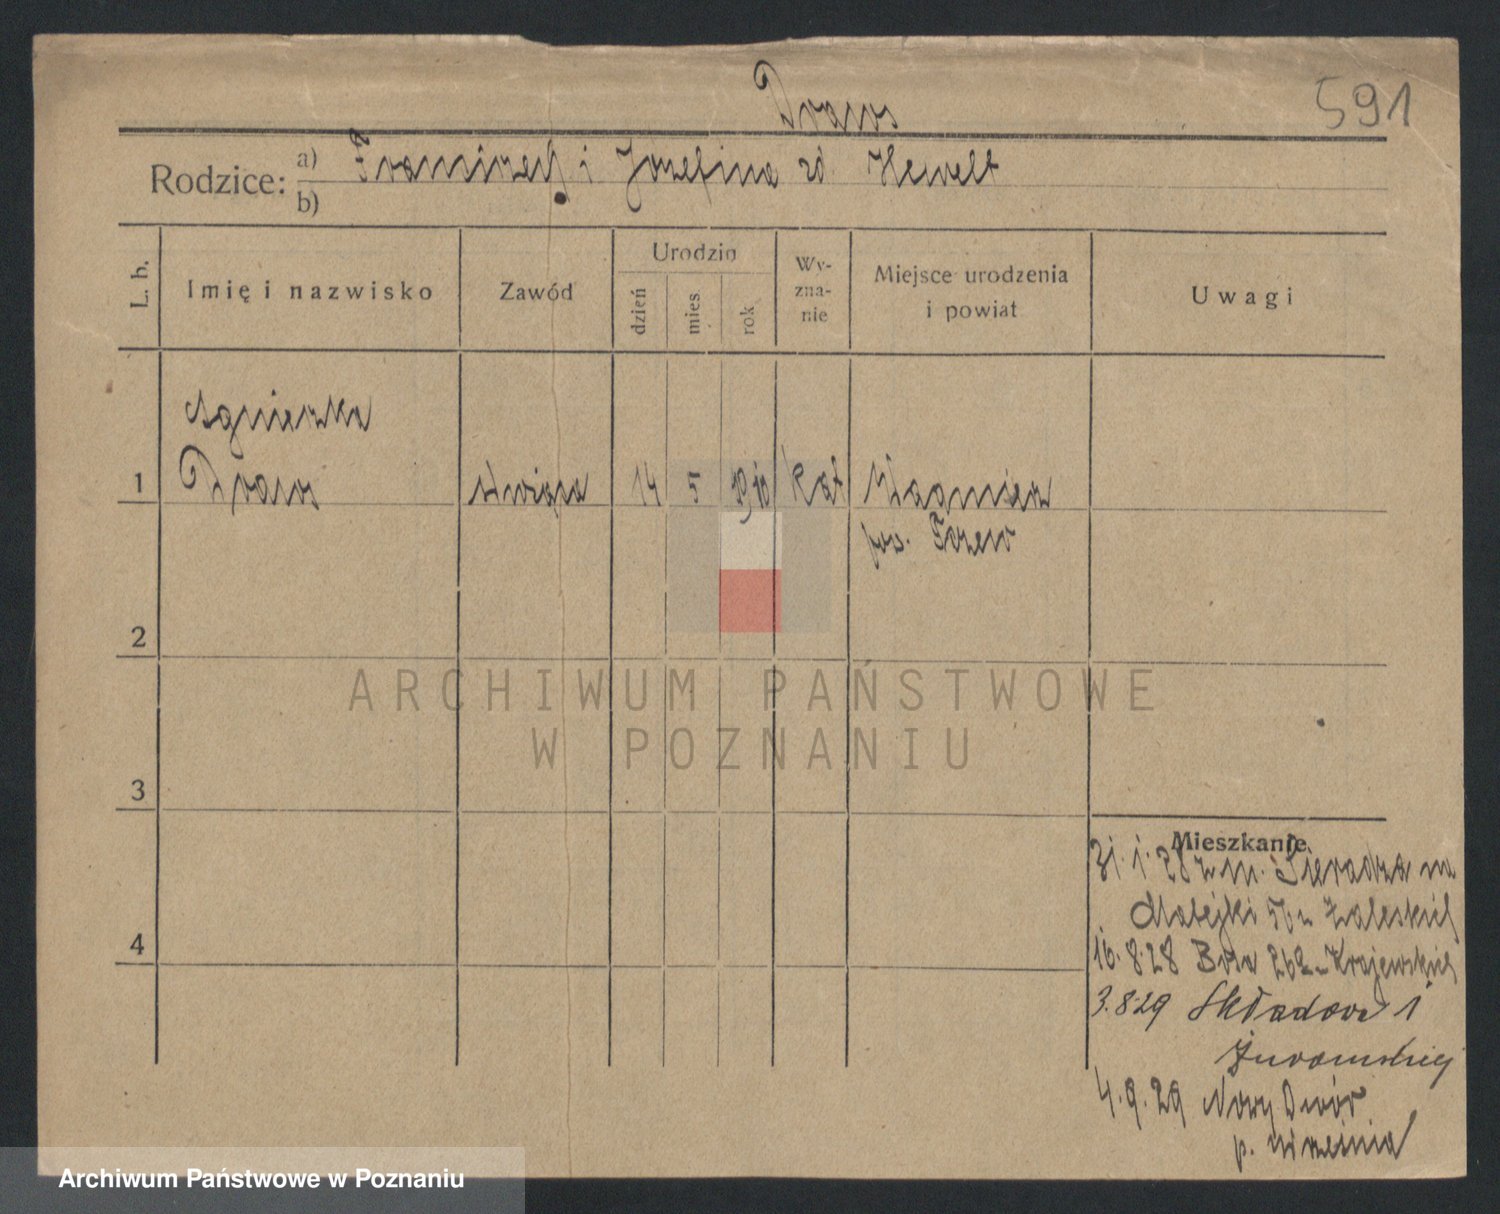 Draws
591
Rodzice: a) Franciszek i Jozefina zd Hewelt
b)
L. b.
Imię i nazwisko
Zawód
Urodzin
dzień
mies
rok
Wy-
zna-
nie
Miejsce urodzenia
i powiat
Uwagi
Agnieszka
1 Draws służąca 14 5 1910 kat
pow. Tczew
2
ARCHIWUM PAŃSTWOWE
W POZNANIU
3
4
Mieszkanie
31.1.28 z m. Sieradza na
Matejki 56 u Zaleskiej
16.8.28 26a u Krajewskiej
3.8.29 Składowa 1
Żuromskiej
4.9.29 Nowy Dwór
p. Września
Archiwum Państwowe w Poznaniu